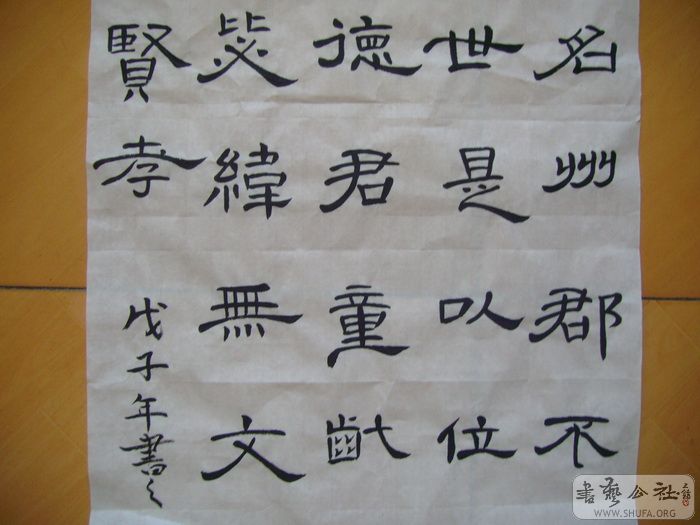 名州郡不
世是以位
德君童齔
炎緯無文
賢孝
戊子年書之
書藝公社
WWW.SHUFA.ORG